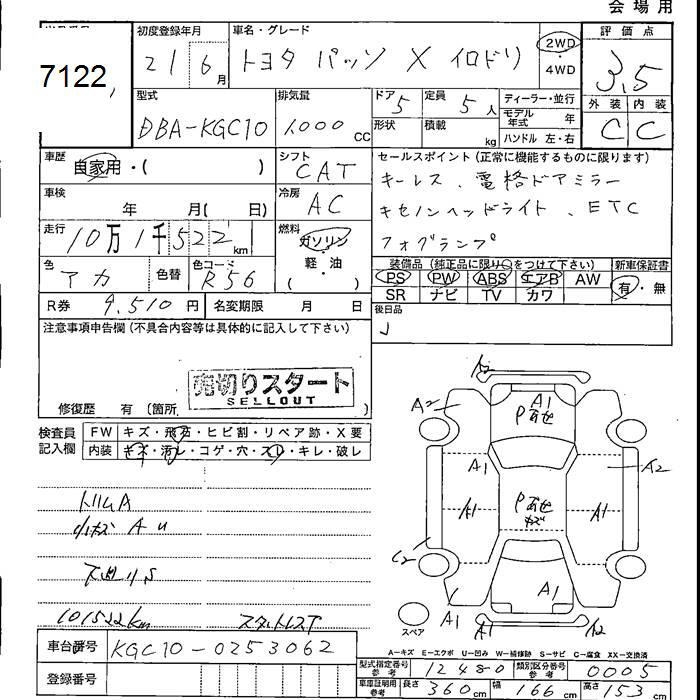 会場用
7122
初度登録年月
21 6月
車名・グレード
トヨタ パッソ X イロドリ
2WD
・
4WD
評価点
3.5
外装 内装
C C
型式
DBA-KGC10
排気量
1000 CC
ドア 5
形状
定員 5人
積載 kg
ディーラー・並行
モデル年式 年
ハンドル 左・右
車歴
自家用・( )
シフト
CAT
セールスポイント (正常に機能するものに限ります)
キーレス、電格ドアミラー
キセノンヘッドライト、ETC
フォグランプ
車検
年 月( 日)
冷房
AC
走行
10万1千522km
燃料
ガソリン
・
軽・油
色
アカ
色替
色コード
R56
装備品 (純正品に限り○をつけて下さい)
新車保証書
PS PW ABS エアB AW
SR ナビ TV カワ
有・無
R券 9,510円
名変期限 月 日
後日品
注意事項申告欄 (不具合内容等は具体的に記入して下さい)
売切りスタート
SELLOUT
修復歴 有 (箇所
検査員
記入欄
FW キズ・飛石・ヒビ割・リペア跡・X要
内装 キズ・汚レ・コゲ・穴・スレ・キレ・破レ
トリムA
101522km
スタットレスT
A2
A2
A1
Pあせ
A1
A2
A1
Pあせ
キズ
A1
C2
A1
A1
A2
スペア
A-キズ E-エクボ U-凹み W-補修跡 S-サビ C-腐食 XX-交換済
車台番号
KGC10-0253062
登録番号
型式指定番号
参考
12480
類別区分番号
参考
0005
車庫証明用
参考
長さ 360cm
幅 166cm
高さ 153cm